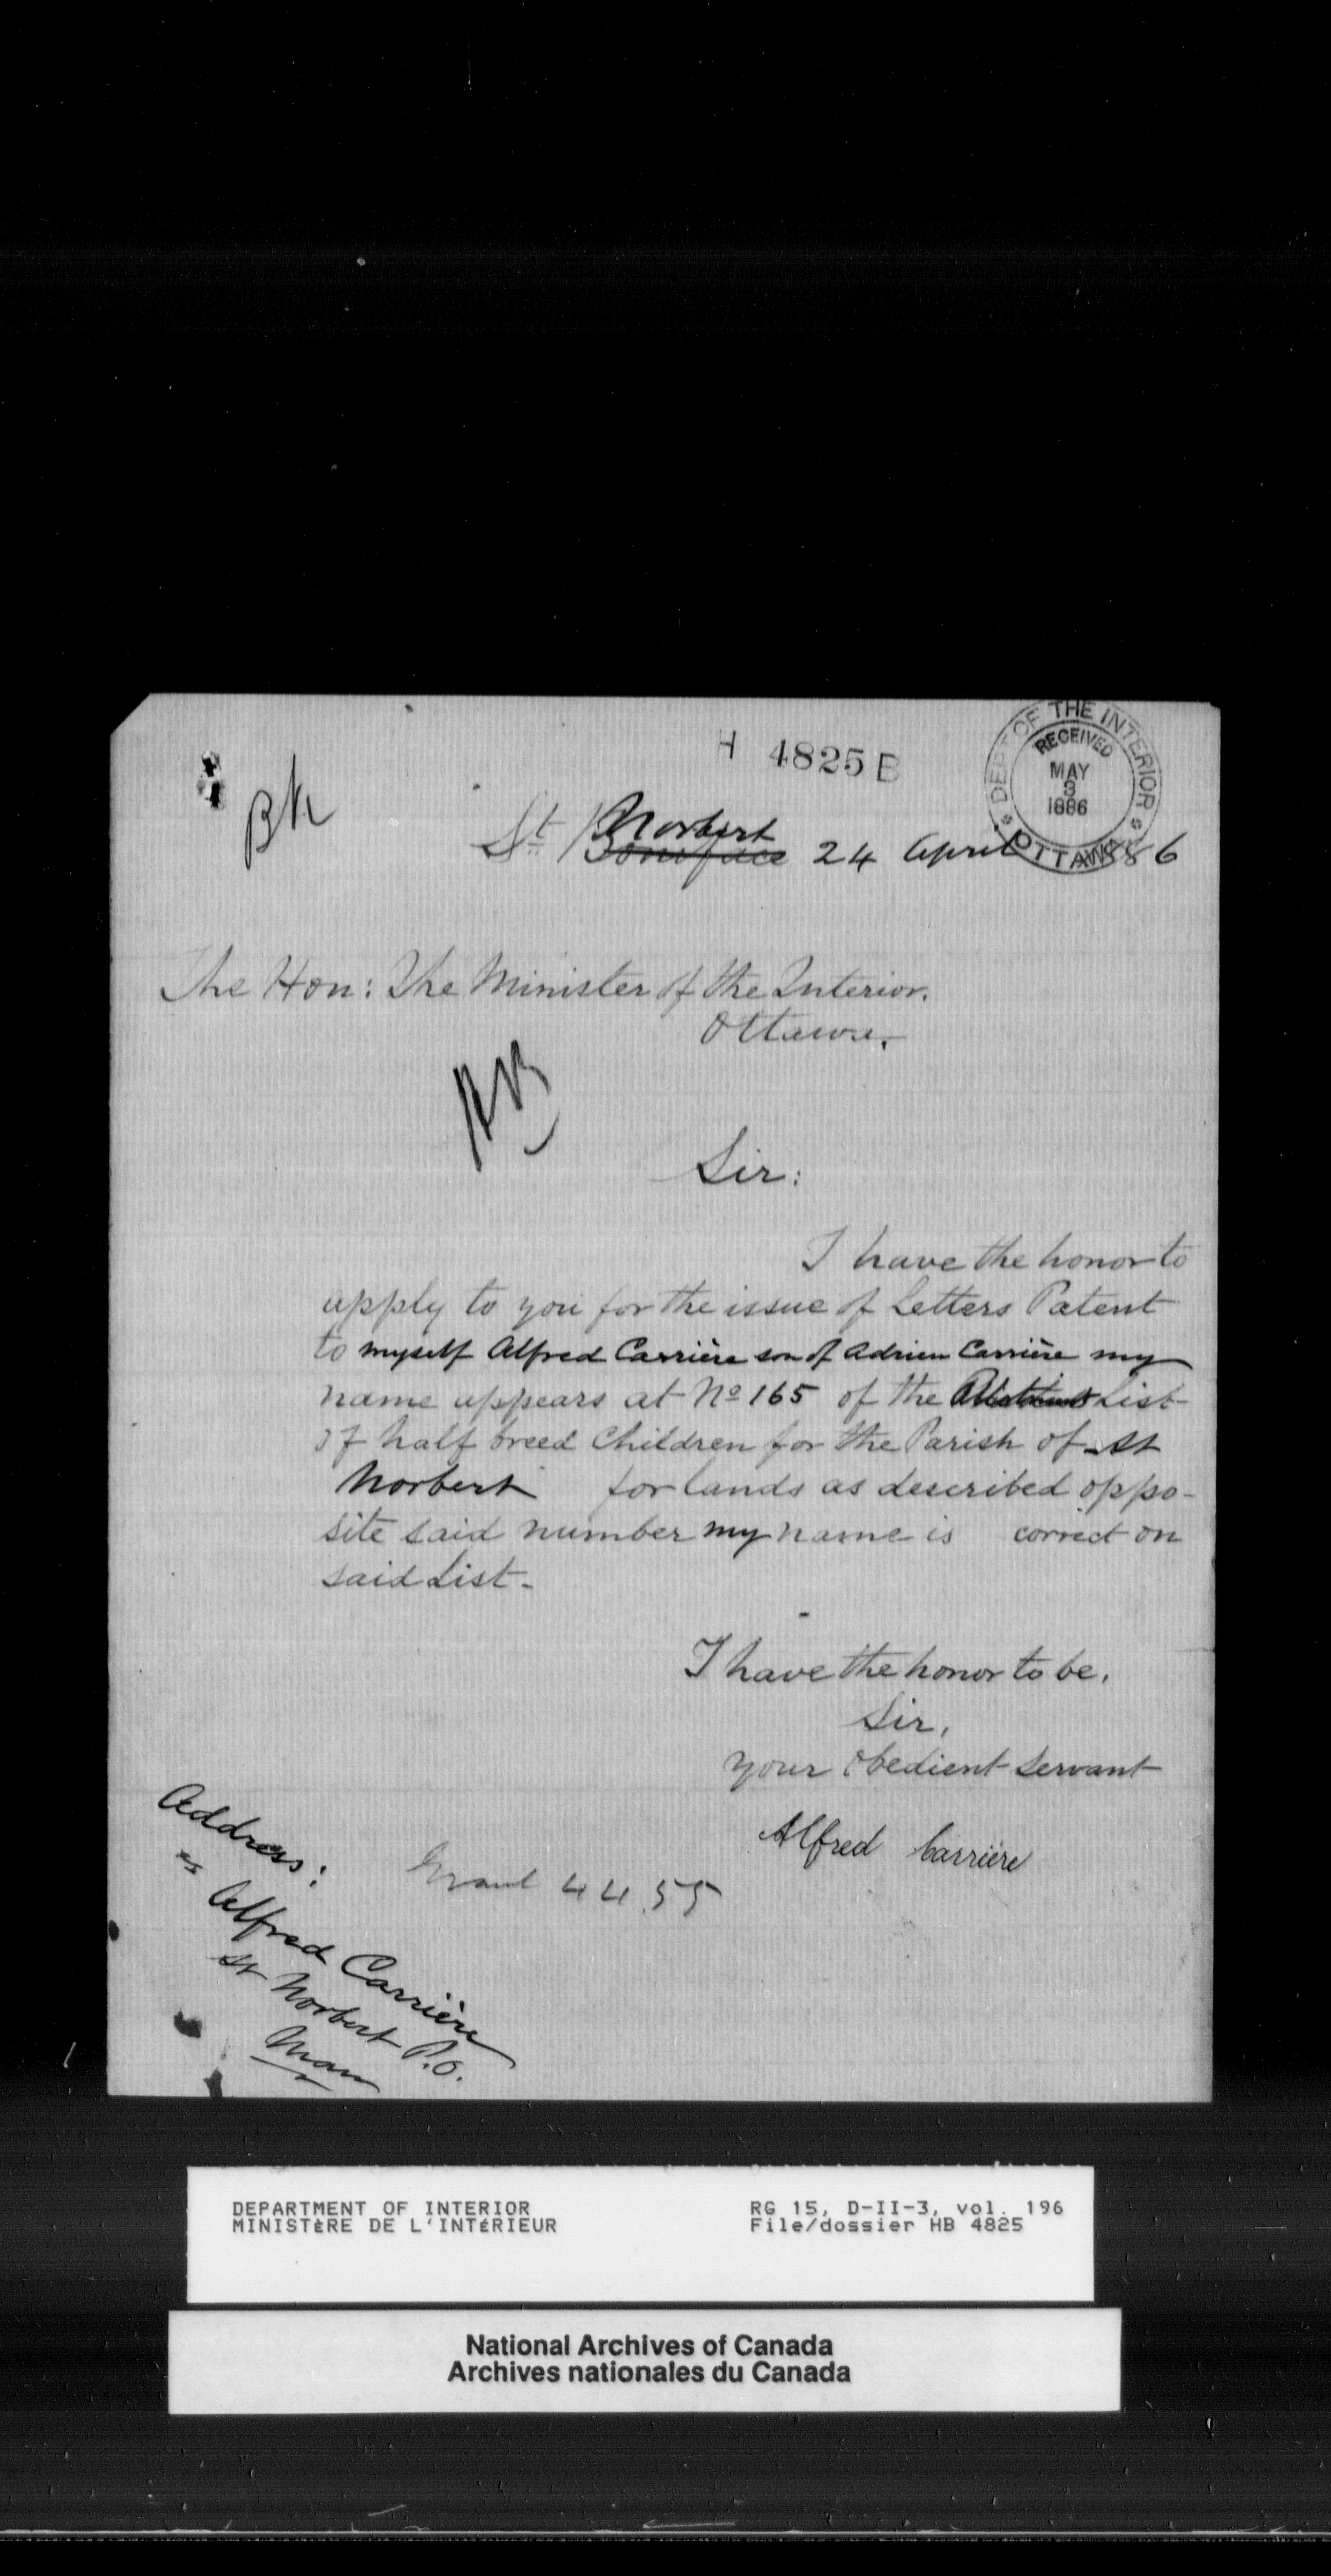 H 4825 B
DEPT OF THE INTERIOR
RECEIVED
MAY
3
1886
OTTAWA
BK
Norbert
St Boniface 24 April 1886
The Hon: The Minister of the Interior.
Ottawa.
Sir:
I have the honor to
apply to you for the issue of Letters Patent
to myself Alfred Carrière son of Adrien Carrière my
name appears at No 165 of the List
of half breed Children for the Parish of St
Norbert for lands as described oppo-
site said number my name is correct on
said List-
I have the honor to be,
Sir,
your obedient servant
Alfred Carrière
Address:
Alfred Carrière
St Norbert P.O.
Man
Grant 4455
DEPARTMENT OF INTERIOR
MINISTÈRE DE L'INTÉRIEUR
RG 15, D-II-3, vol. 196
File/dossier HB 4825
National Archives of Canada
Archives nationales du Canada